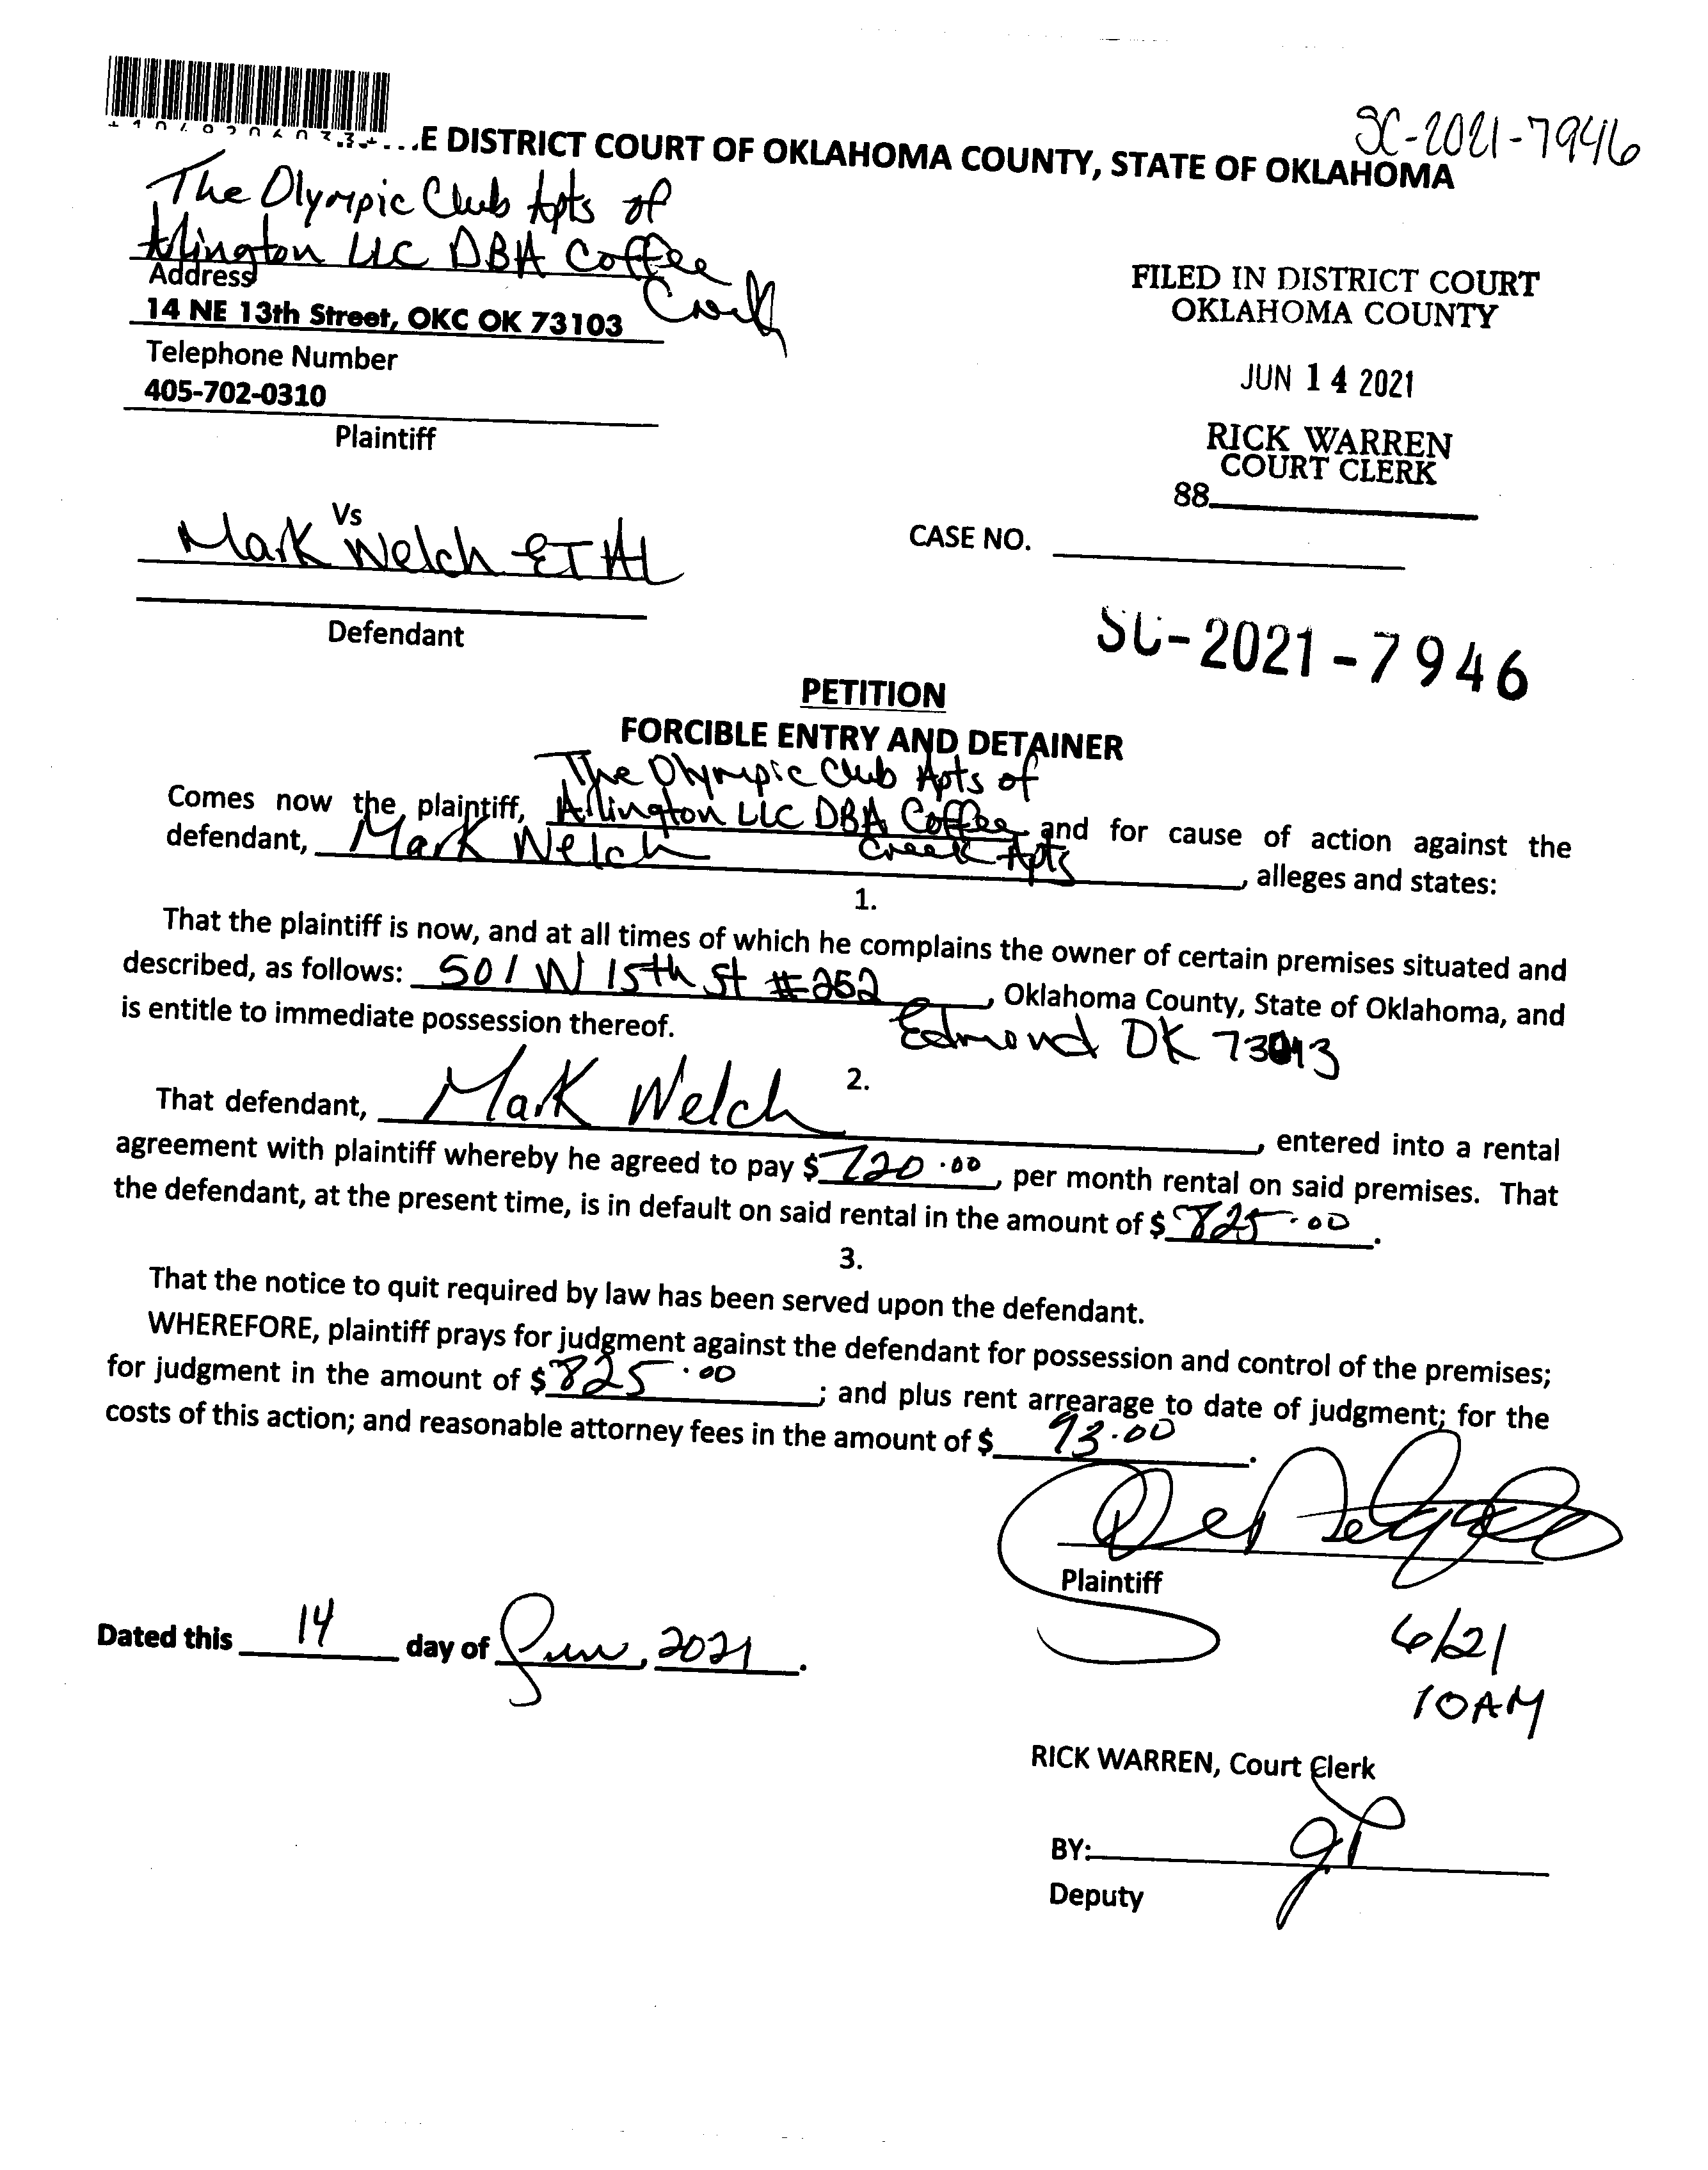 SC-2021-7946
E DISTRICT COURT OF OKLAHOMA COUNTY, STATE OF OKLAHOMA
The Olympic Club Apts of
Arlington LLC DBA Coffee
Creek
Address
14 NE 13th Street, OKC OK 73103
Telephone Number
405-702-0310
Plaintiff
FILED IN DISTRICT COURT
OKLAHOMA COUNTY
JUN 14 2021
RICK WARREN
COURT CLERK
88
Vs
Mark Welch ET AL
Defendant
CASE NO.
SC-2021-7946
PETITION
FORCIBLE ENTRY AND DETAINER
The Olympic Club Apts of
Comes now the plaintiff, Arlington LLC DBA Coffee and for cause of action against the
Creek Apts
defendant, Mark Welch, alleges and states:
1.
That the plaintiff is now, and at all times of which he complains the owner of certain premises situated and
described, as follows: 501 W 15th St #252, Oklahoma County, State of Oklahoma, and
is entitle to immediate possession thereof. Edmond OK 73013
2.
That defendant, Mark Welch, entered into a rental
agreement with plaintiff whereby he agreed to pay $ 720.00, per month rental on said premises. That
the defendant, at the present time, is in default on said rental in the amount of $ 825.00.
3.
That the notice to quit required by law has been served upon the defendant.
WHEREFORE, plaintiff prays for judgment against the defendant for possession and control of the premises;
for judgment in the amount of $ 825.00; and plus rent arrearage to date of judgment; for the
costs of this action; and reasonable attorney fees in the amount of $ 93.00.
Plaintiff
Dated this 14 day of Jun, 2021.
6/21
10AM
RICK WARREN, Court Clerk
BY:
Deputy